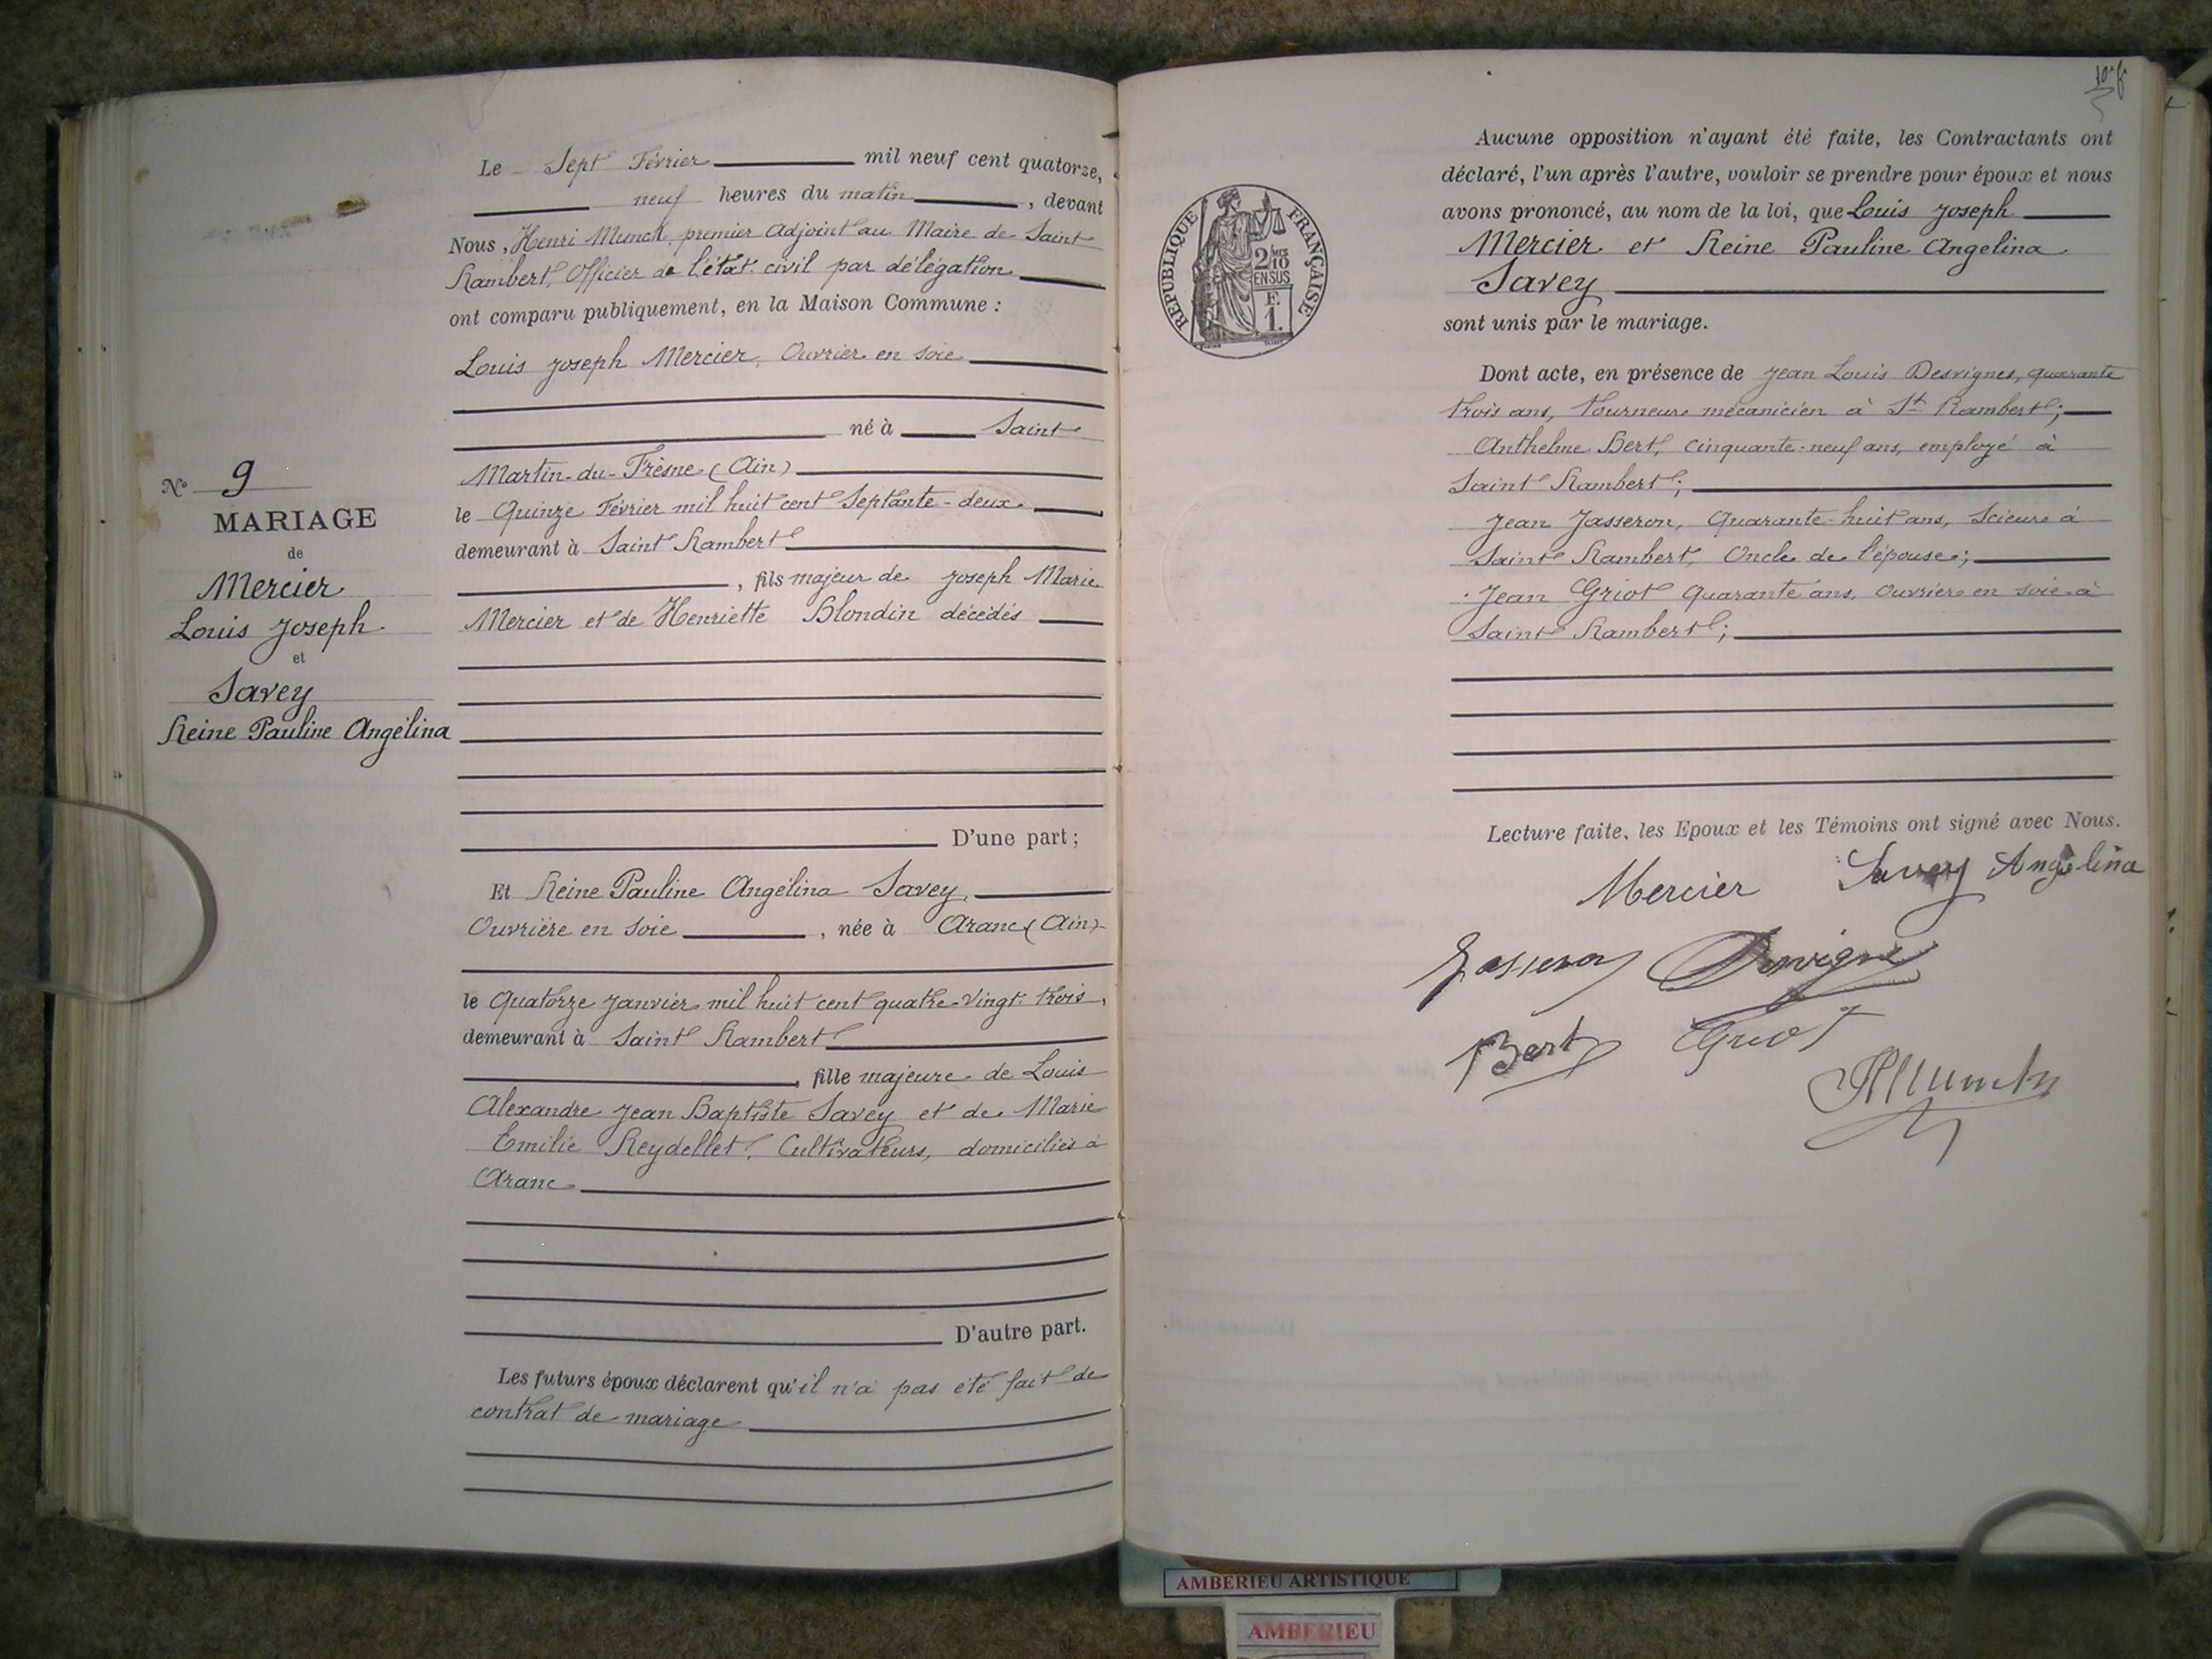 Le Sept Février mil neuf cent quatorze,
neuf heures du matin, devant
Nous, Henri Munch, premier Adjoint au Maire de Saint
Rambert, Officier de l'état civil par délégation
ont comparu publiquement, en la Maison Commune :
Louis Joseph Mercier, Ouvrier en soie
né à Saint
Martin-du-Frêsne (Ain)
le Quinze Février mil huit cent Septante-deux
demeurant à Saint Rambert
, fils majeur de Joseph Marie
Mercier et de Henriette Blondin décédés
D'une part ;
Et Reine Pauline Angélina Savey,
Ouvrière en soie, née à Aranc (Ain)
le Quatorze Janvier mil huit cent quatre-vingt-trois,
demeurant à Saint Rambert
, fille majeure de Louis
Alexandre Jean Baptiste Savey et de Marie
Emilie Reydellet, Cultivateurs, domiciliés à
Aranc
D'autre part.
Les futurs époux déclarent qu'il n'a pas été fait de
contrat de mariage
N° 9
MARIAGE
de
Mercier
Louis Joseph
et
Savey
Reine Pauline Angélina
RÉPUBLIQUE FRANÇAISE
2/10
EN SUS
F.
1.
Aucune opposition n'ayant été faite, les Contractants ont
déclaré, l'un après l'autre, vouloir se prendre pour époux et nous
avons prononcé, au nom de la loi, que Louis Joseph
Mercier et Reine Pauline Angelina
Savey
sont unis par le mariage.
Dont acte, en présence de Jean Louis Desvignes, quarante
trois ans, tourneur mécanicien à St Rambert ;
Anthelme Bert, cinquante-neuf ans, employé à
Saint Rambert ;
Jean Jasseron, Quarante-huit ans, Scieur à
Saint Rambert, Oncle de l'épouse ;
Jean Griot Quarante ans, Ouvrier en soie à
Saint Rambert ;
Lecture faite, les Epoux et les Témoins ont signé avec Nous.
Mercier Savey Angelina
Jasseron Desvignes
Bert Griot
HMunch
AMBERIEU ARTISTIQUE
AMBERIEU